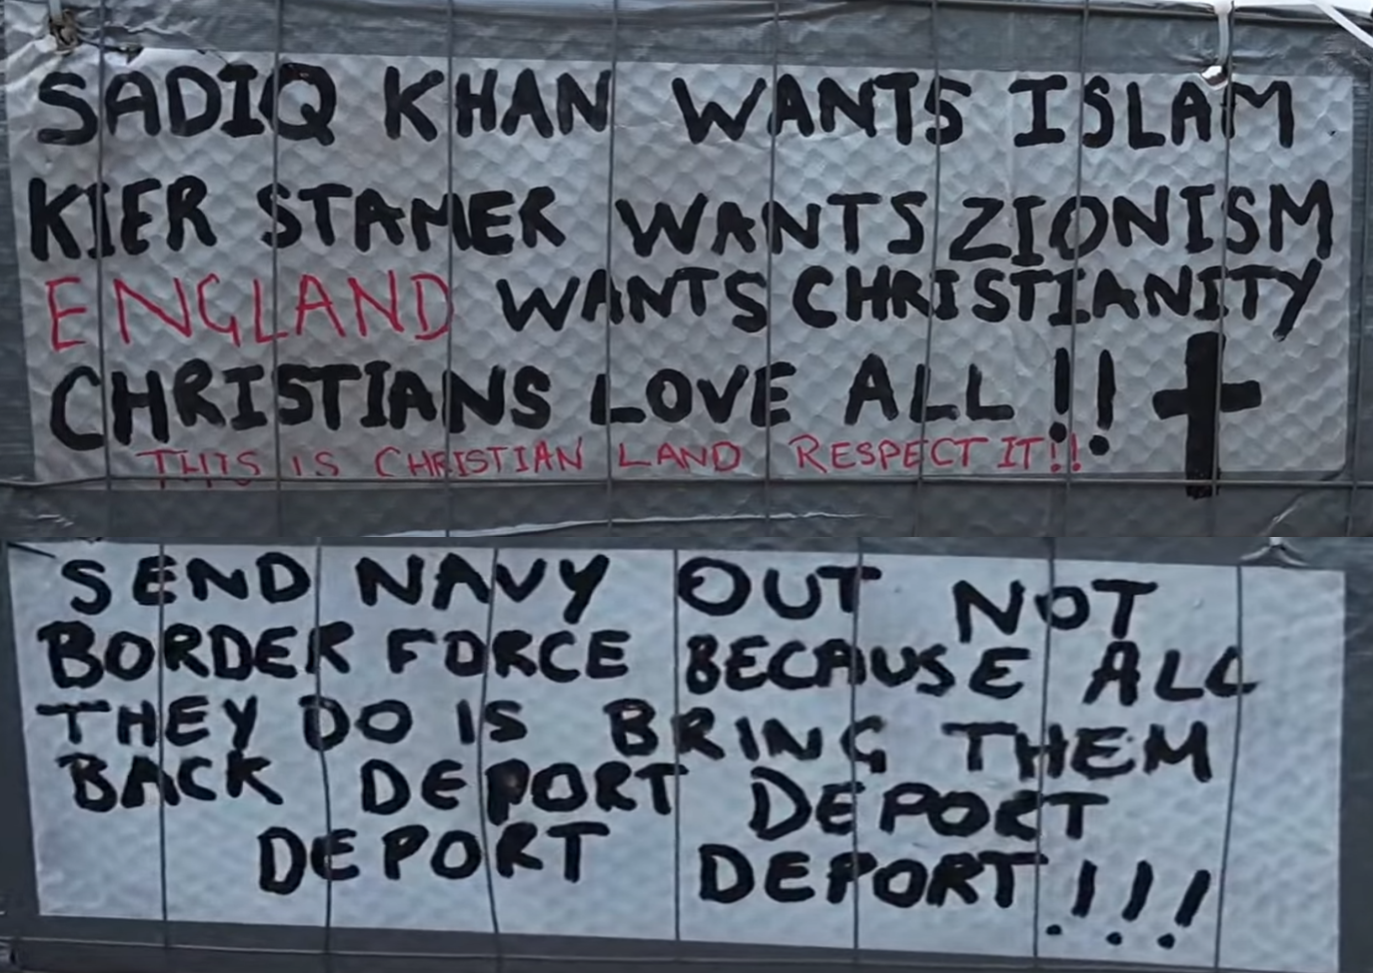 SADIQ KHAN WANTS ISLAM
KIER STAMER WANTS ZIONISM
ENGLAND WANTS CHRISTIANITY
CHRISTIANS LOVE ALL !!
THIS IS CHRISTIAN LAND RESPECT IT!!
SEND NAVY OUT NOT
BORDER FORCE BECAUSE ALL
THEY DO IS BRING THEM
BACK DEPORT DEPORT
DEPORT DEPORT!!!